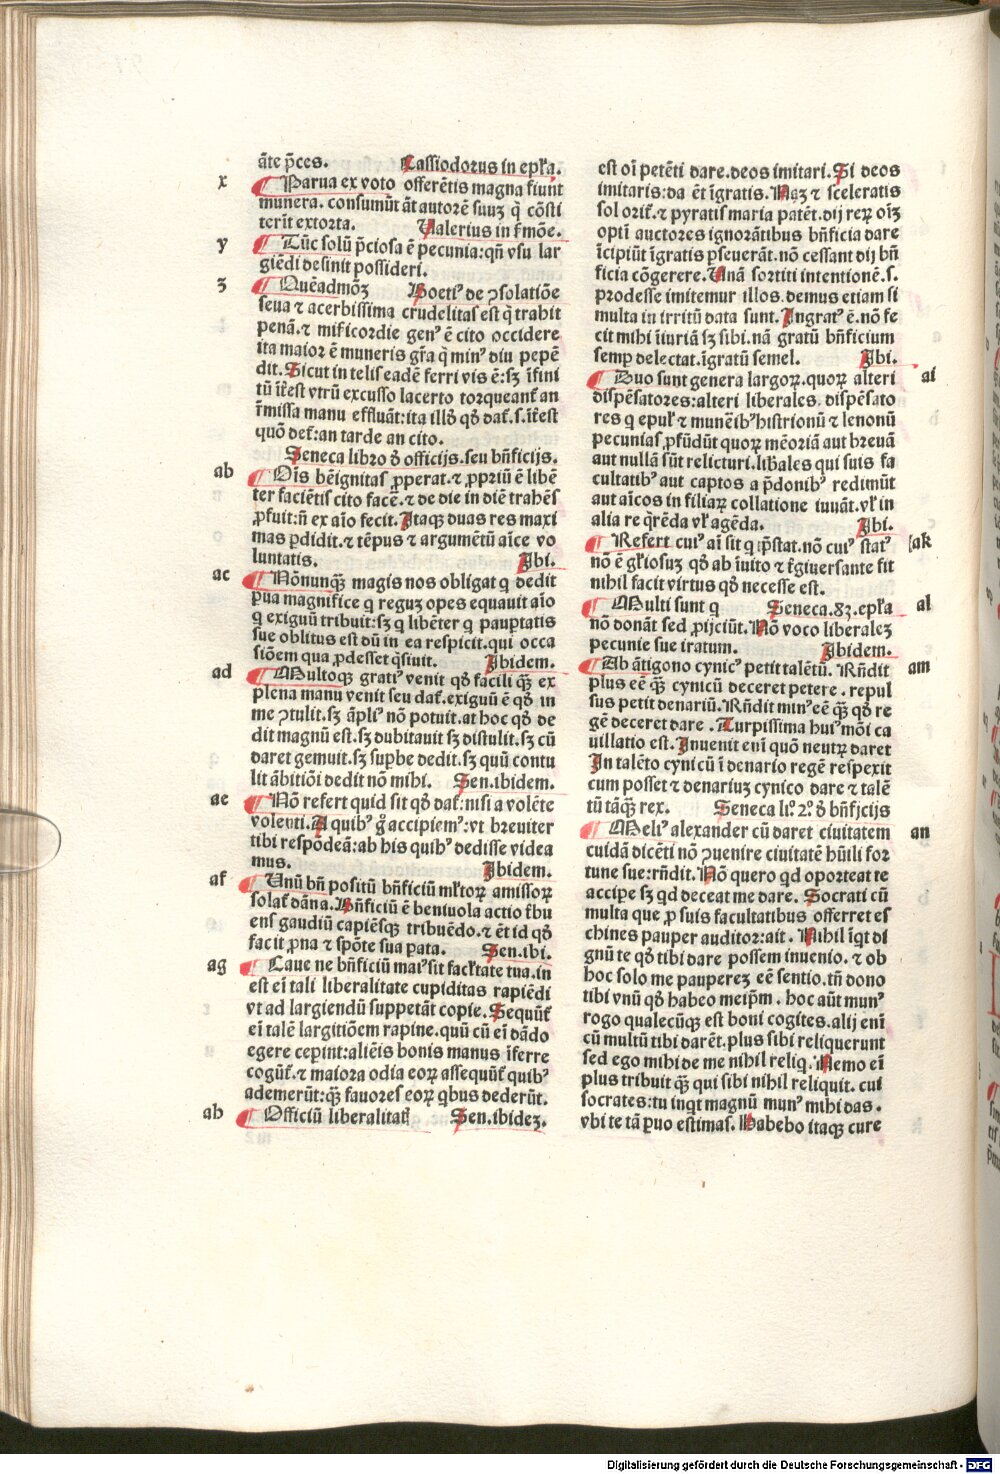 āte p̄ces. Cassiodorus in epl'a.
x Parua ex voto offerētis magna fiunt
munera. consumūt āt autorē suuꝫ q̄ cōsti
terīt extorta. Valerius in s'mōe.
y Tūc solū p̄ciosa ē pecunia: qn̄ vsu lar
giēdi desinit possideri.
ꝫ Quēadmoꝫ Boeti⁹ de ꝯsolatiōe
seua ⁊ acerbissima crudelitas est q̄ trahit
penā. ⁊ mis'icordie gen⁹ ē cito occidere
ita maior ē muneris gr̄a q̄ min⁹ diu pepē
dit. Sicut in telis eadē ferri vis ē: sꝫ īfini
tū īt'est vtrū excusso lacerto torqueant' an
r̄missa manu effluāt: ita illḋ qḋ dat'. s. īt'est
quō det': an tarde an cito.
Seneca libro ḋ officijs. seu bn̄ficijs.
ab Oīs bēignitas ꝓperat. ⁊ ꝓpriū ē libē
ter faciētis cito facē. ⁊ de die in diē trahēs
ꝓfuit: n̄ ex aīo fecit. Itaqꝫ duas res maxi
mas ꝑdidit. ⁊ tēpus ⁊ argumētū aīce vo
luntatis. Ibi.
ac Nōnunqꝫ magis nos obligat q dedit
ꝑua magnifice q reguꝫ opes equauit aīo
q exiguū tribuit: sꝫ q libēter q pauꝑtatis
sue oblitus est dū in ea respicit. qui occa
siōem qua ꝓdesset q̄siuit. Ibidem.
ad Multoqꝫ grati⁹ venit qḋ facili qꝫ ex
plena manu venit seu dat'. exiguū ē qḋ in
me ꝯtulit. sꝫ āpli⁹ nō potuit. at hoc qḋ de
dit magnū est. sꝫ dubitauit sꝫ distulit. sꝫ cū
daret gemuit. sꝫ suꝑbe dedit. sꝫ quū contu
lit ābitiōi dedit nō mihi. Sen. ibidem.
ae Nō refert quid sit qḋ dat': nisi a volēte
volenti. A quib⁹ g̊ accipiem⁹: vt breuiter
tibi respōdeā: ab his quib⁹ dedisse videa
mus. Ibidem.
af Unū bn̄ positū bn̄ficiū ml'toꝝ amissoꝝ
solat' dāna. Bn̄ficiū ē beniuola actio t'bu
ens gaudiū capiēsqꝫ tribuēdo. ⁊ ēt id qḋ
facit ꝓna ⁊ spōte sua pata. Sen. ibi.
ag Caue ne bn̄ficiū mai⁹ sit facl'tate tua. in
est eī tali liberalitate cupiditas rapiēdi
vt ad largiendū suppetāt copie. Sequūt'
eī talē largitiōem rapine. quū cū eī dādo
egere ceꝑint: aliēis bonis manus īferre
cogūt'. ⁊ maiora odia eoꝝ assequūt' quib⁹
ademerūt: qꝫ fauores eoꝝ qbus dederūt.
ah Officiū liberalitat' Sen. ibideꝫ.
est oī petēti dare. deos imitari. Si deos
imitaris: da ēt īgratis. Naꝫ ⁊ sceleratis
sol orit'. ⁊ pyratis maria patēt. dij reꝝ oīꝫ
optī auctores ignorātibus bn̄ficia dare
īcipiūt īgratis ꝑseuerāt. nō cessant dij bn̄
ficia cōgerere. Unā sortiti intentionē. s.
prodesse imitemur illos. demus etiam si
multa in irritū data sunt. Ingrat⁹ ē. nō fe
cit mihi īiuriā sꝫ sibi. nā gratū bn̄ficium
semꝑ delectat. īgratū semel. Ibi.
ai Duo sunt genera largoꝝ. quoꝝ alteri
dispēsatores: alteri liberales. dispēsato
res q epul' ⁊ munēib⁹ histrionū ⁊ lenonū
pecunias ꝓfūdūt quoꝝ mēoriā aut breuā
aut nullā sūt relicturi. lib'ales qui suis fa
cultatib⁹ aut captos a p̄donib⁹ redimūt
aut aīcos in filiaꝝ collatione iuuāt. vl' in
alia re q̄rēda vl' agēda. Ibi.
ak Refert cui⁹ aī sit q p̄stat. nō cui⁹ stat⁹
nō ē gl'iosuꝫ qḋ ab īuito ⁊ t'giuersante fit
nihil facit virtus qḋ necesse est.
al Multi sunt q Seneca. 8ꝫ. epl'a
nō donāt sed ꝓijciūt. Nō voco liberaleꝫ
pecunie sue iratum. Ibidem.
am Ab ātigono cynic⁹ petit talētū. Rn̄dit
plus eē qꝫ cynicū deceret petere. repul
sus petit denariū. Rn̄dit min⁹ eē qꝫ qḋ re
gē deceret dare. Turpissima hui⁹mōi ca
uillatio est. Inuenit enī quō neutꝝ daret
In talēto cynicū ī denario regē respexit
cum posset ⁊ denariuꝫ cynico dare ⁊ talē
tū tāqꝫ rex. Seneca li⁰. 2⁰. ḋ bn̄fjcijs
an Meli⁹ alexander cū daret ciuitatem
cuidā dicēti nō ꝯuenire ciuitatē hūili for
tune sue: rn̄dit. Nō quero qd oporteat te
accipe sꝫ qd deceat me dare. Socrati cū
multa que ꝓ suis facultatibus offerret es
chines pauper auditor: ait. Nihil īqt di
gnū te qḋ tibi dare possem inuenio. ⁊ ob
hoc solo me paupereꝫ eē sentio. tn̄ dono
tibi vnū qḋ habeo meipm̄. hoc aūt mun⁹
rogo qualecūqꝫ est boni cogites. alij enī
cū multū tibi darēt. plus sibi reliquerunt
sed ego mihi de me nihil reliq. Nemo eī
plus tribuit qꝫ qui sibi nihil reliquit. cui
socrates: tu inqt magnū mun⁹ mihi das.
vbi te tā ꝑuo estimas. Habebo itaqꝫ cure
Digitalisierung gefördert durch die Deutsche Forschungsgemeinschaft - DFG